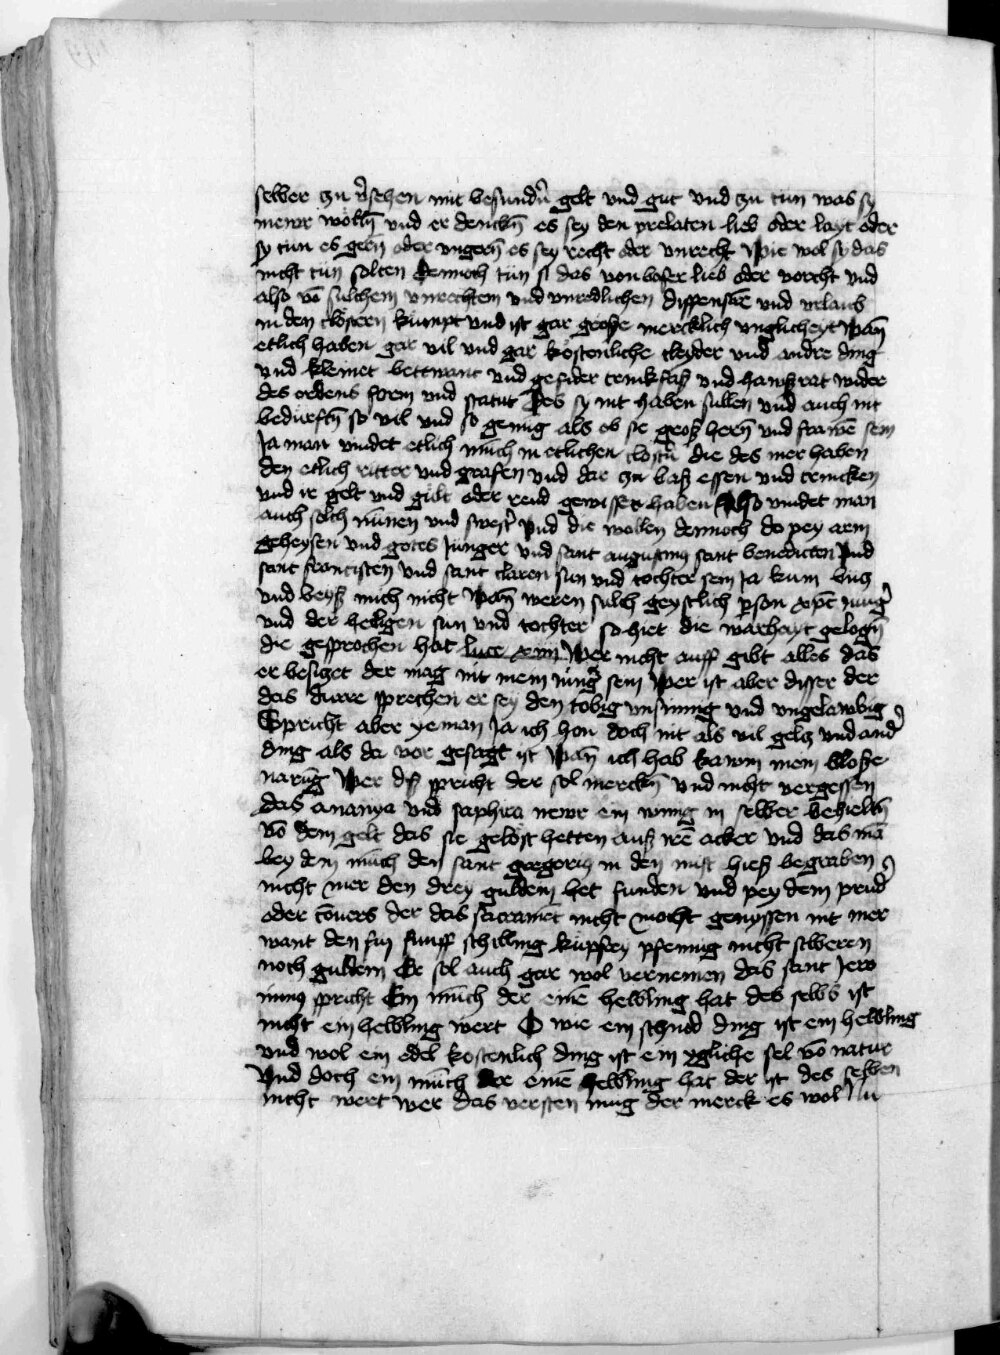 selber zu v̉sehen mit besundṅ gelt vnd gut vnd zu tun was sy
newr wollñ vnd er denckñ es sey den prelaten lieb oder layt oder
sy tun es gerñ oder vngerñ es sey recht oder vnrecht Wie wol sy das
nicht tün solten Dennoch tün si das von boser lieb oder vorcht vnd
also vō sulchem vnrechtem vnd vnredlichen dispensirē vnd vrlaub
in den clöstern kumpt vnd ist gar große mercklich vnglicheyt Wañ
etlich haben gar vil vnd gar kostenliche cleyder vnd andre ding
vnd kleinet bettwant vnd gefider trinkfaß vnd hawßrat wider
des ordens form vnd statut Des sy nit haben sullen vnd auch nit
bedürfftñ so vil vnd so genug als ob sie groß herñ vnd frawē sein
Ja man vindet etlich münch in etlichen clostṅ die des mer haben
den etlich ritter vnd grafen vnd dar zu baß essen vnd trincken
vnd ir gelt vnd gült oder rend gewisser haben Also vindet man
auch solch nünen vnd swestˀ Vnd die wollen dennoch do pey arm
geheysen vnd gotes Junger vnd sant augustinꝰ sant benedicten Vnd
sant francisten vnd sant claren sun vnd tochter sein Ja kum lug
vnd beyß mich nicht Wañ weren sulch geystlich pson xp̄c iungˀ
vnd der heiligen sun vnd tochter so hiet die warhayt gelogñ
die gesprochen hat luce xiiij Wer nicht auff gibt alles das
er besiczet der mag nit mein iungˀ sein Wer ist aber disser der
das durre sprechen er sey den tobig vnsinnig vnd vngelawbig
Spricht aber yeman Ja ich hon doch nit als vil gelcz vnd andˀ
ding als da vor gesagt ist Wañ ich hab kawm mein bloße
narūg Wer dß spricht der sol merckñ vnd nicht vergessen
das ananya vnd saphira newr ein winig in selber behieltñ
vō dem gelt das sie gelöst hetten auß irē acker vnd das mā
bey dem münch den sant gregoriꝰ in den mist hieß begraben
nicht mer den drey guldein het funden vnd pey dem prudˀ
oder cōuers der das sacramēt nicht mocht genyssen nit mer
want den fuj funff schilling küpfrey pfennig nicht silberen
noch guldein Er sol auch gar wol vernemen das sant Jero
nimꝰ spricht Ein münch der einē helbling hat des selbs ist
nicht ein helbling wert O wie ein schnöd ding ist ein helbling
vnd wol ein edel kostenlich ding ist ein ygliche sel vō natur
Vnd doch ein münch der einē helbling hat der ist des selben
nicht wert wer das versten mug der merck es wol Nu